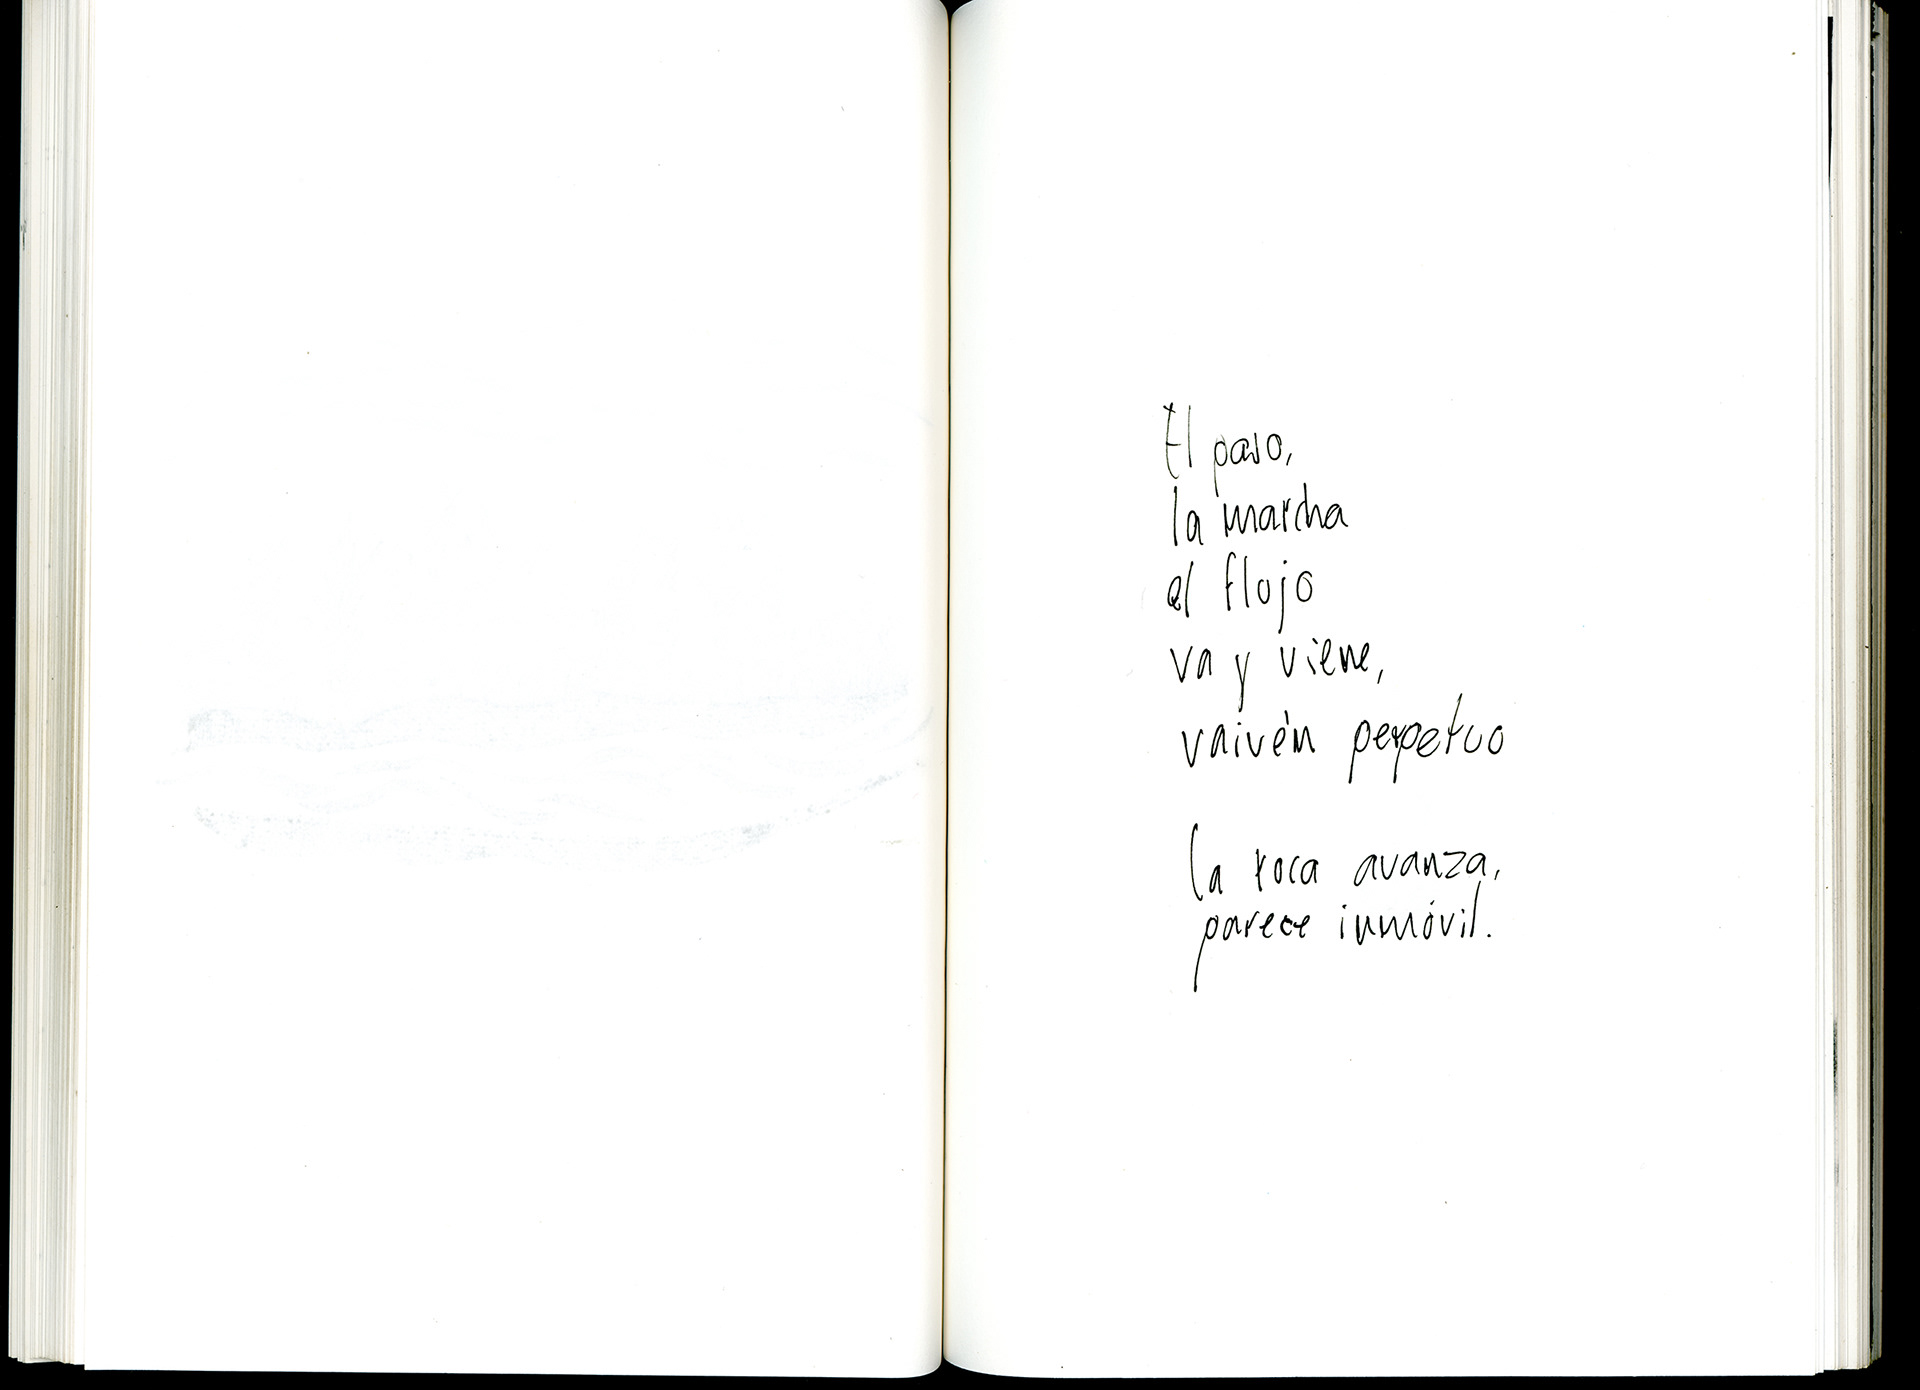 El paso,
la marcha
el flujo
va y viene,
vaivén perpetuo
la roca avanza,
parece inmóvil.